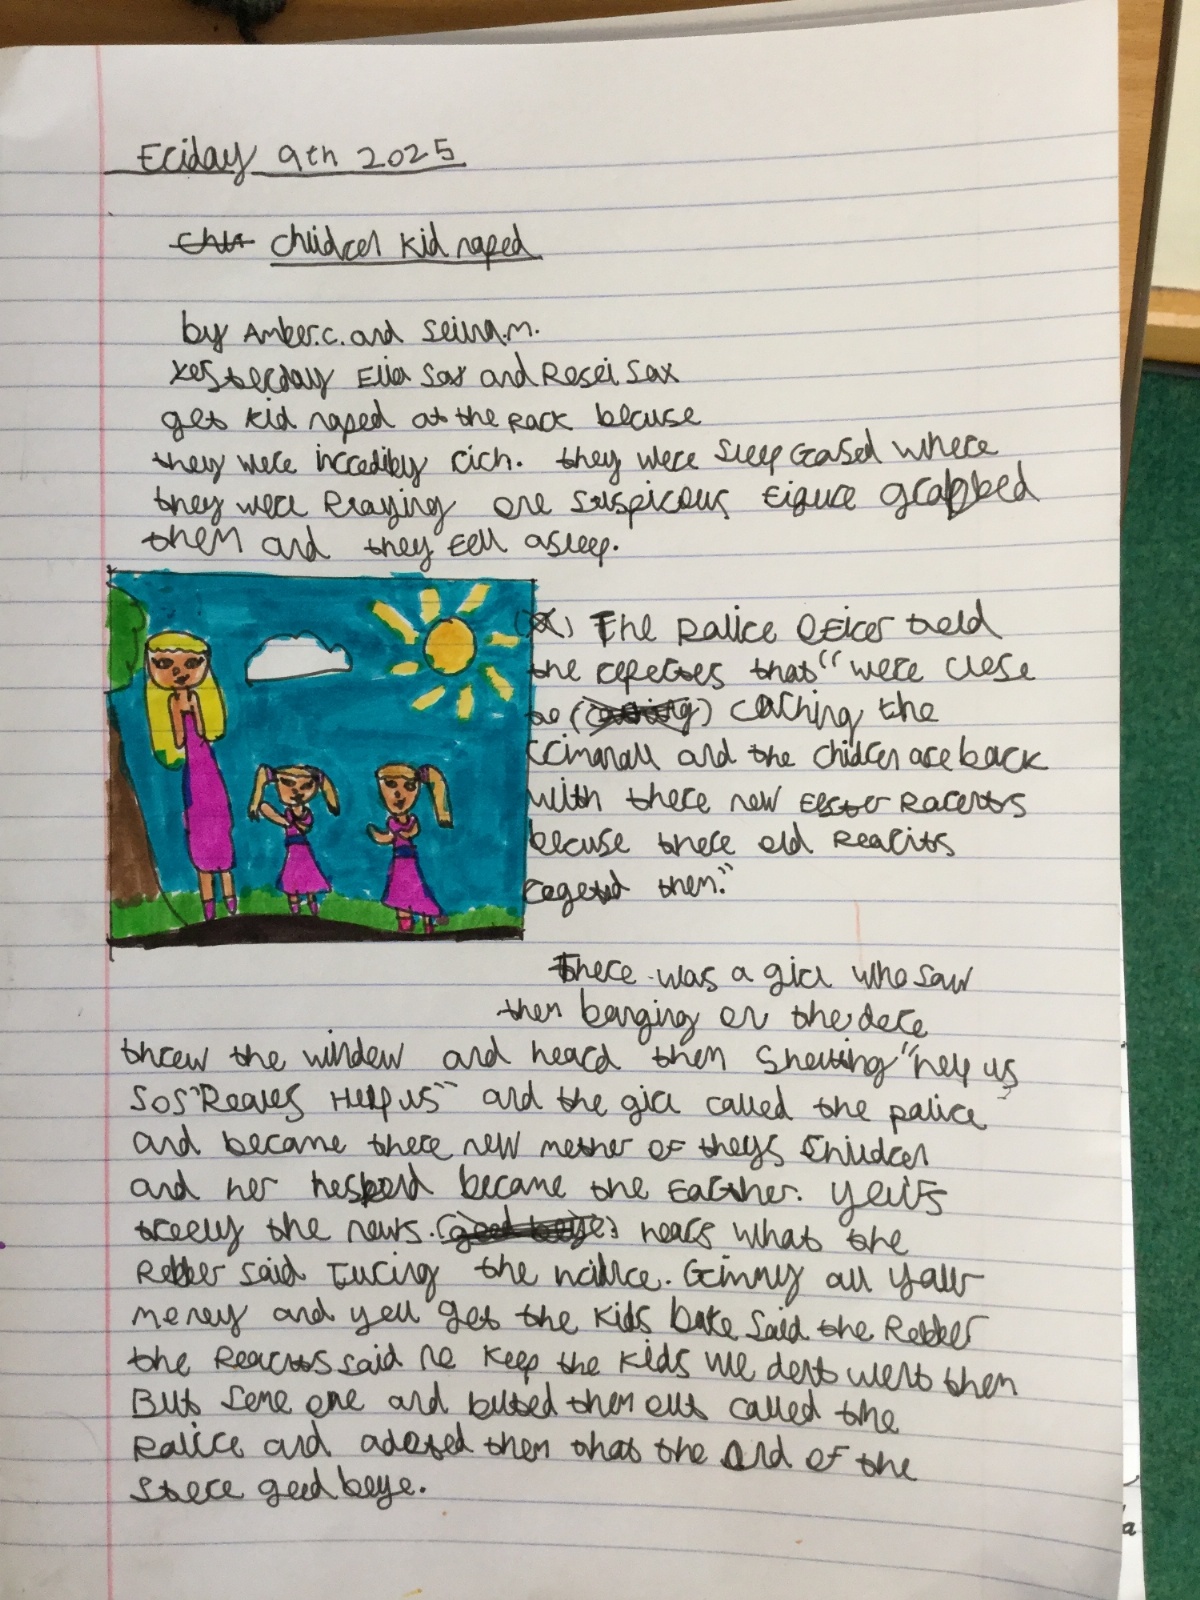 Friday 9th 2025
chlidren kid naped
by Amber.c. and Seina.m.
Yesterday Ella Sax and Rosei Sax
get kid naped at the Park becuse
they were incrediby rich. they were sleep Gased where
they were Praying one suspicous figure grabbed
them and they fell asleep.
The Police Oficer told
the reporters that "were close
to caching the
criminall and the childrn are back
with there new foster Parents
becuse there old Pearits
regeted them."
There was a girl who saw
them banging on the dore
threw the window and heard them showting "help us
SOS Pleaves Help us" and the girl called the police
and became there new mother of theys Chlidren
and her hesbend became the farther.
the news. hears what the
Robber said During the Gimmy all your
money and you get the kids bake said the Robber
the Pearits said no keep the kids we dont wont them
But some one and called the
Police and adopted them that the And of the
store good beye.